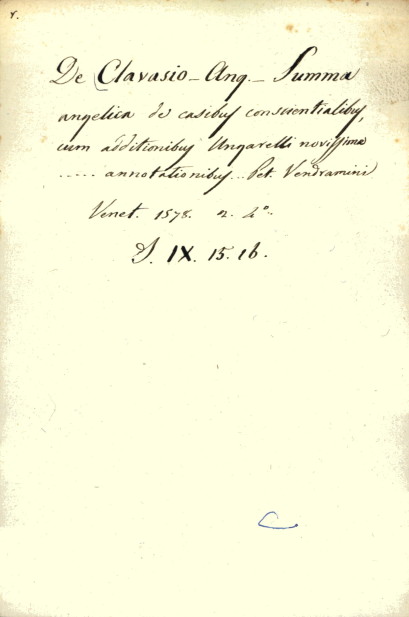 r.
De Clavasio - Ang. - Summa
angelica de casibus conscientialibus,
cum additionibus Ungarelli novissimæ
..... annotationibus... Pet. Vendramini
Venet. 1578. 2. 4°.
S. IX. 15. 16.
C